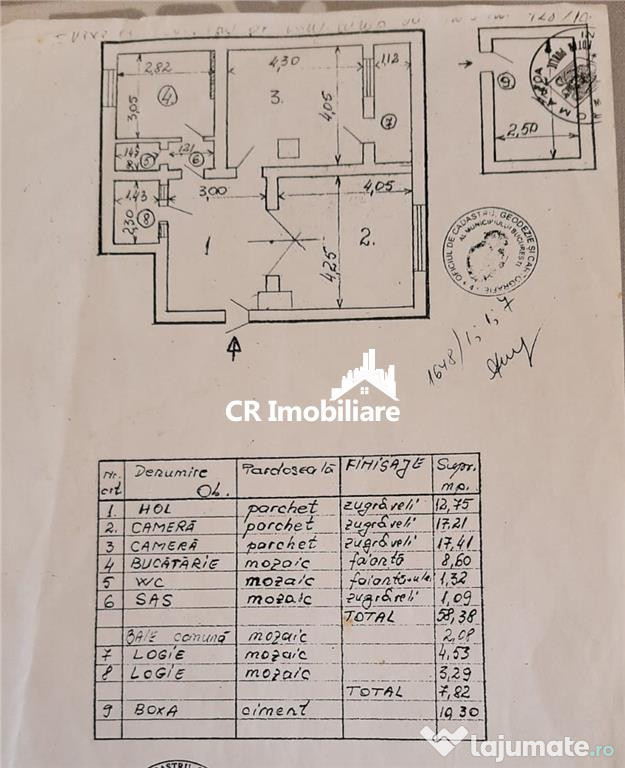 2,82
4,30
1,12
4.
3.
7
9
3,05
4,05
2,50
1,43
5
1,21
6
1,43
3,00
4,05
8
2,30
1
2.
4,25
OFICIUL DE CADASTRU, GEODEZIE ȘI CARTOGRAFIE
AL MUNICIPIULUI BUCUREȘTI
1648/
CR Imobiliare
Nr. crt Denumire Ob. Pardoseală FINISAJE Supr. mp.
1. HOL parchet zugrăveli 12,75
2. CAMERĂ parchet zugrăveli 17,21
3 CAMERĂ parchet zugrăveli 17,41
4 BUCĂTĂRIE mozaic faianță 8,60
5 WC mozaic 1,32
6 SAS mozaic zugrăveli 1,09
TOTAL 58,38
BAIE comună mozaic 2,08
7 LOGIE mozaic 4,53
8 LOGIE mozaic 3,29
TOTAL 7,82
9 BOXA ciment 10,30
lajumate.ro